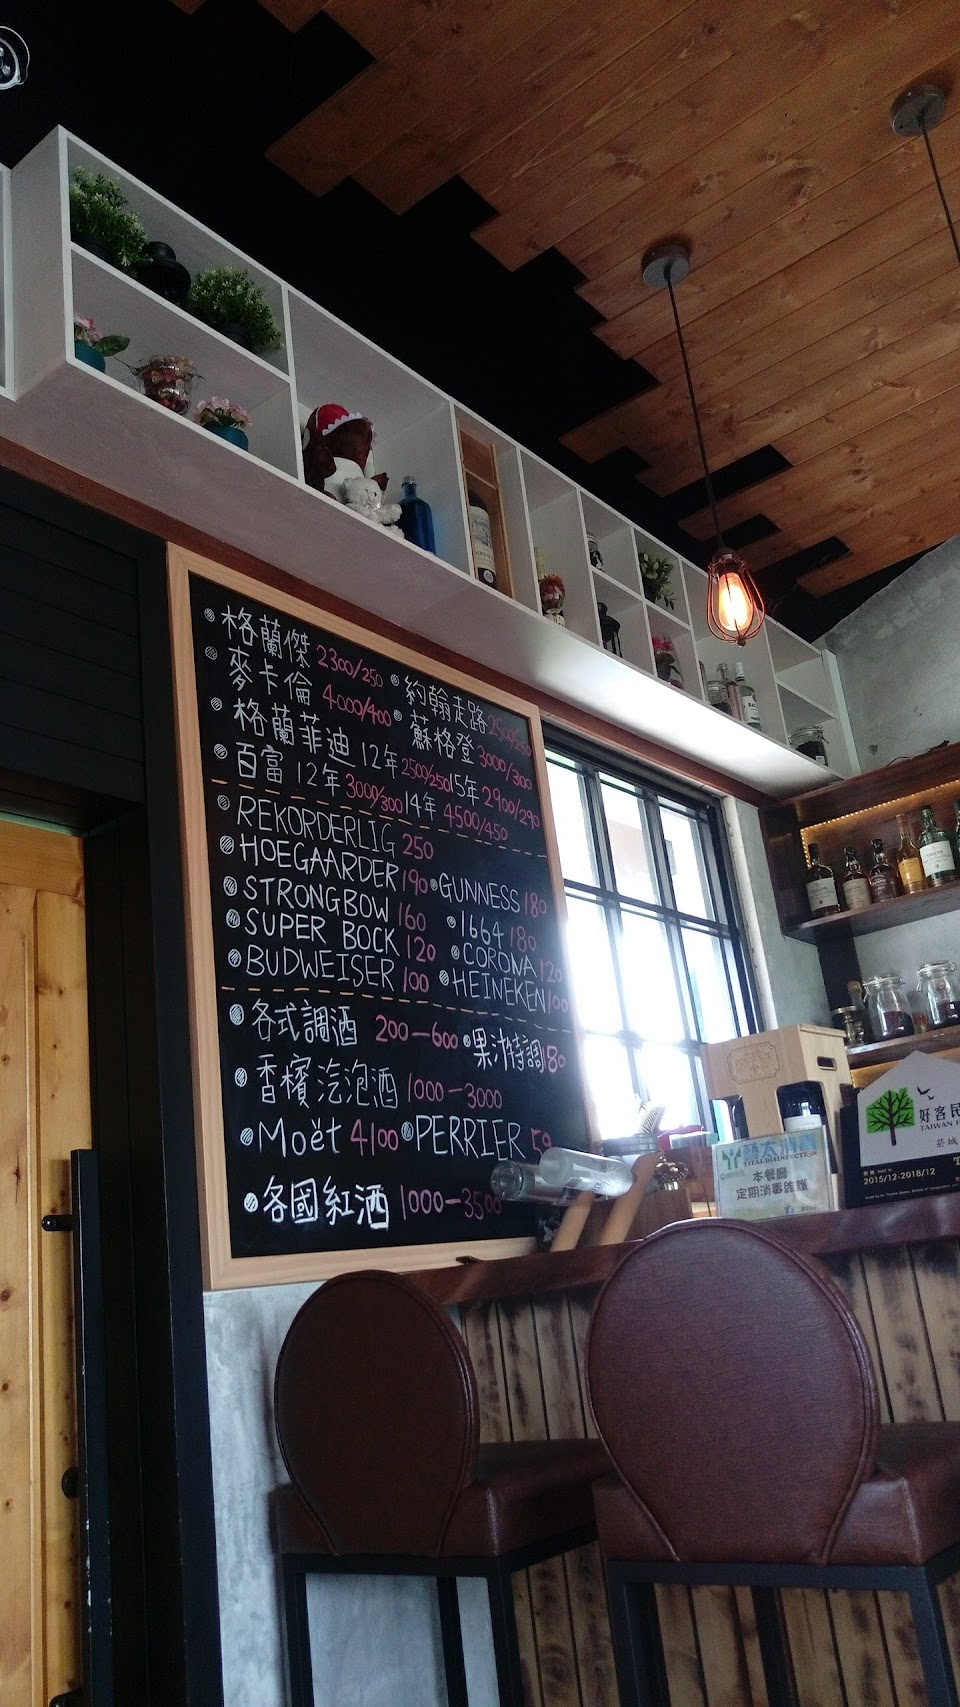 格蘭傑 2300/250
約翰走路 2500/250
麥卡倫 4000/400
蘇格登 3000/300
格蘭菲迪 12年 2500/250 15年 2900/290
百富 12年 3000/300 14年 4500/450
REKORDERLIG 250
HOEGAARDER 190
GUNNESS 180
STRONGBOW 160
1664 180
SUPER BOCK 120
CORONA 120
BUDWEISER 100
HEINEKEN 100
各式調酒 200—600
果汁特調 180
香檳 汽泡酒 1000—3000
Moët 4100
PERRIER
各國紅酒 1000—3500
VITAL DISINFECTION
本餐廳
定期消毒維護
好客民
TAIWAN H
2015/12-2018/12